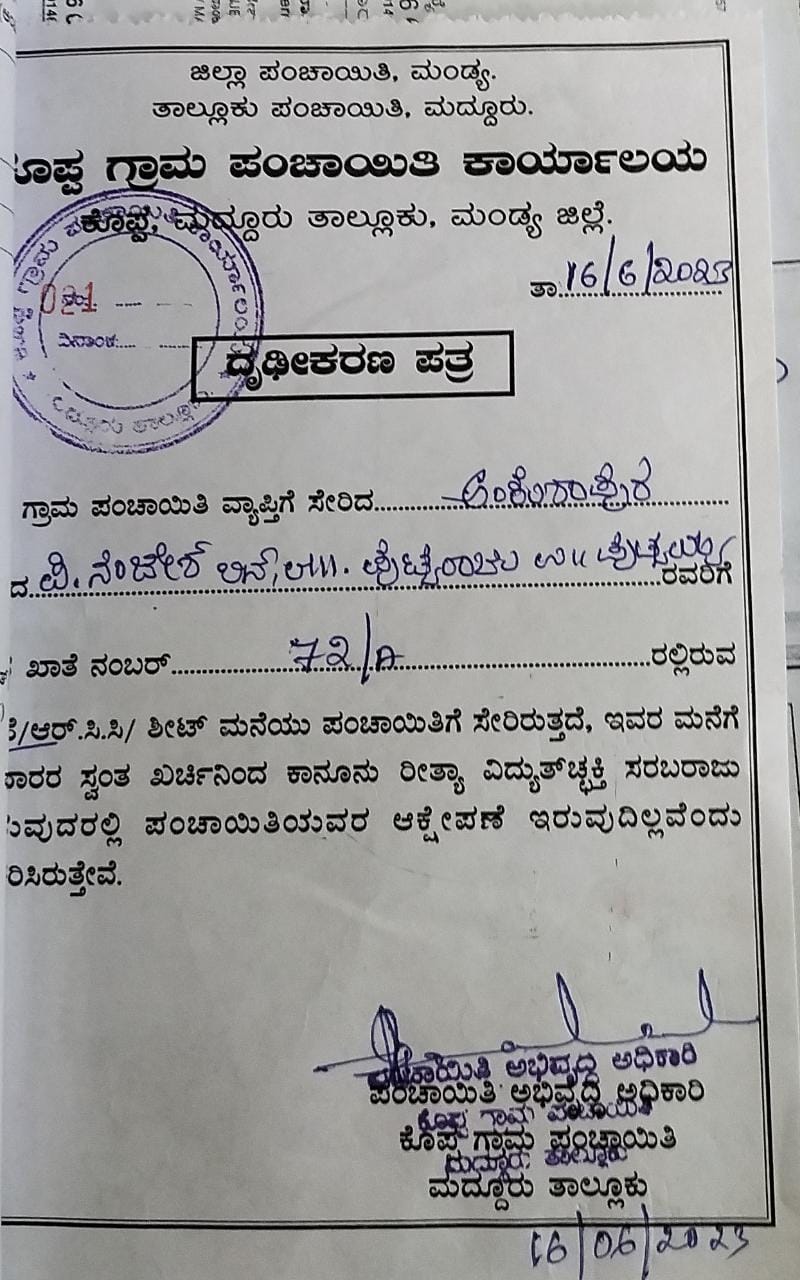 ಜಿಲ್ಲಾ ಪಂಚಾಯಿತಿ, ಮಂಡ್ಯ.
ತಾಲ್ಲೂಕು ಪಂಚಾಯಿತಿ, ಮದ್ದೂರು.
ಗ್ರಾಮ ಪಂಚಾಯಿತಿ ಕಾರ್ಯಾಲಯ
ಕೊಪ್ಪ, ಮದ್ದೂರು ತಾಲ್ಲೂಕು, ಮಂಡ್ಯ ಜಿಲ್ಲೆ.
ತಾ. 16/6/2023
021
ದಿನಾಂಕ:
ದೃಢೀಕರಣ ಪತ್ರ
ಗ್ರಾಮ ಪಂಚಾಯಿತಿ ವ್ಯಾಪ್ತಿಗೆ ಸೇರಿದ
ದ ರವರಿಗೆ
ಖಾತೆ ನಂಬರ್ 72/A ರಲ್ಲಿರುವ
/ಆರ್.ಸಿ.ಸಿ/ ಶೀಟ್ ಮನೆಯು ಪಂಚಾಯಿತಿಗೆ ಸೇರಿರುತ್ತದೆ, ಇವರ ಮನೆಗೆ
ಕಾರರ ಸ್ವಂತ ಖರ್ಚಿನಿಂದ ಕಾನೂನು ರೀತ್ಯಾ ವಿದ್ಯುತ್‌ಚ್ಛಕ್ತಿ ಸರಬರಾಜು
ುವುದರಲ್ಲಿ ಪಂಚಾಯಿತಿಯವರ ಆಕ್ಷೇಪಣೆ ಇರುವುದಿಲ್ಲವೆಂದು
ರಿಸಿರುತ್ತೇವೆ.
ಪಂಚಾಯಿತಿ ಅಭಿವೃದ್ಧಿ ಅಧಿಕಾರಿ
ಪಂಚಾಯಿತಿ ಅಭಿವೃದ್ಧಿ ಅಧಿಕಾರಿ
ಕೊಪ್ಪ ಗ್ರಾಮ ಪಂಚಾಯಿತಿ
ಕೊಪ್ಪ ಗ್ರಾಮ ಪಂಚಾಯಿತಿ
ಮದ್ದೂರು ತಾಲ್ಲೂಕು
ಮದ್ದೂರು ತಾಲ್ಲೂಕು
16/06/2023